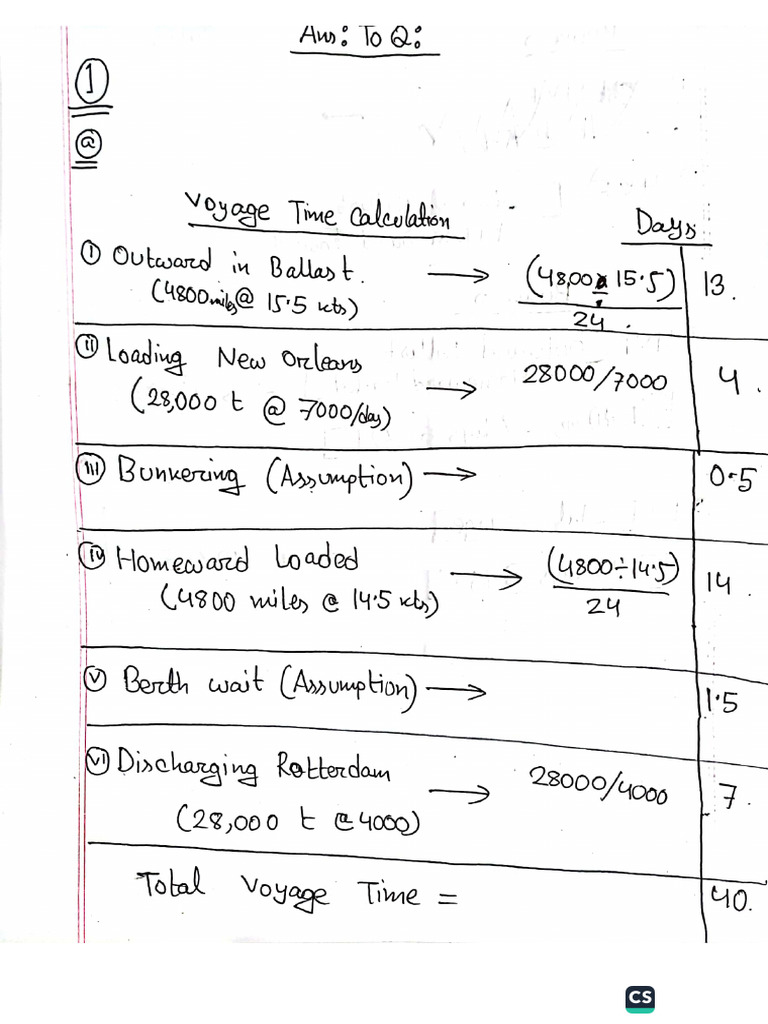 Ans: To Q:
1
a
Voyage Time Calculation
Days
i Outward in Ballast. → (4800 ÷ 15.5) 13.
(4800 miles @ 15.5 kts) 24.
ii Loading New Orleans → 28000/7000 4.
(28,000 t @ 7000/day)
iii Bunkering (Assumption) → 0.5
iv Homeward Loaded → (4800÷14.5) 14.
(4800 miles @ 14.5 kts) 24
v Berth wait (Assumption) → 1.5
vi Discharging Rotterdam → 28000/4000 7.
(28,000 t @ 4000)
Total Voyage Time = 40.
CS